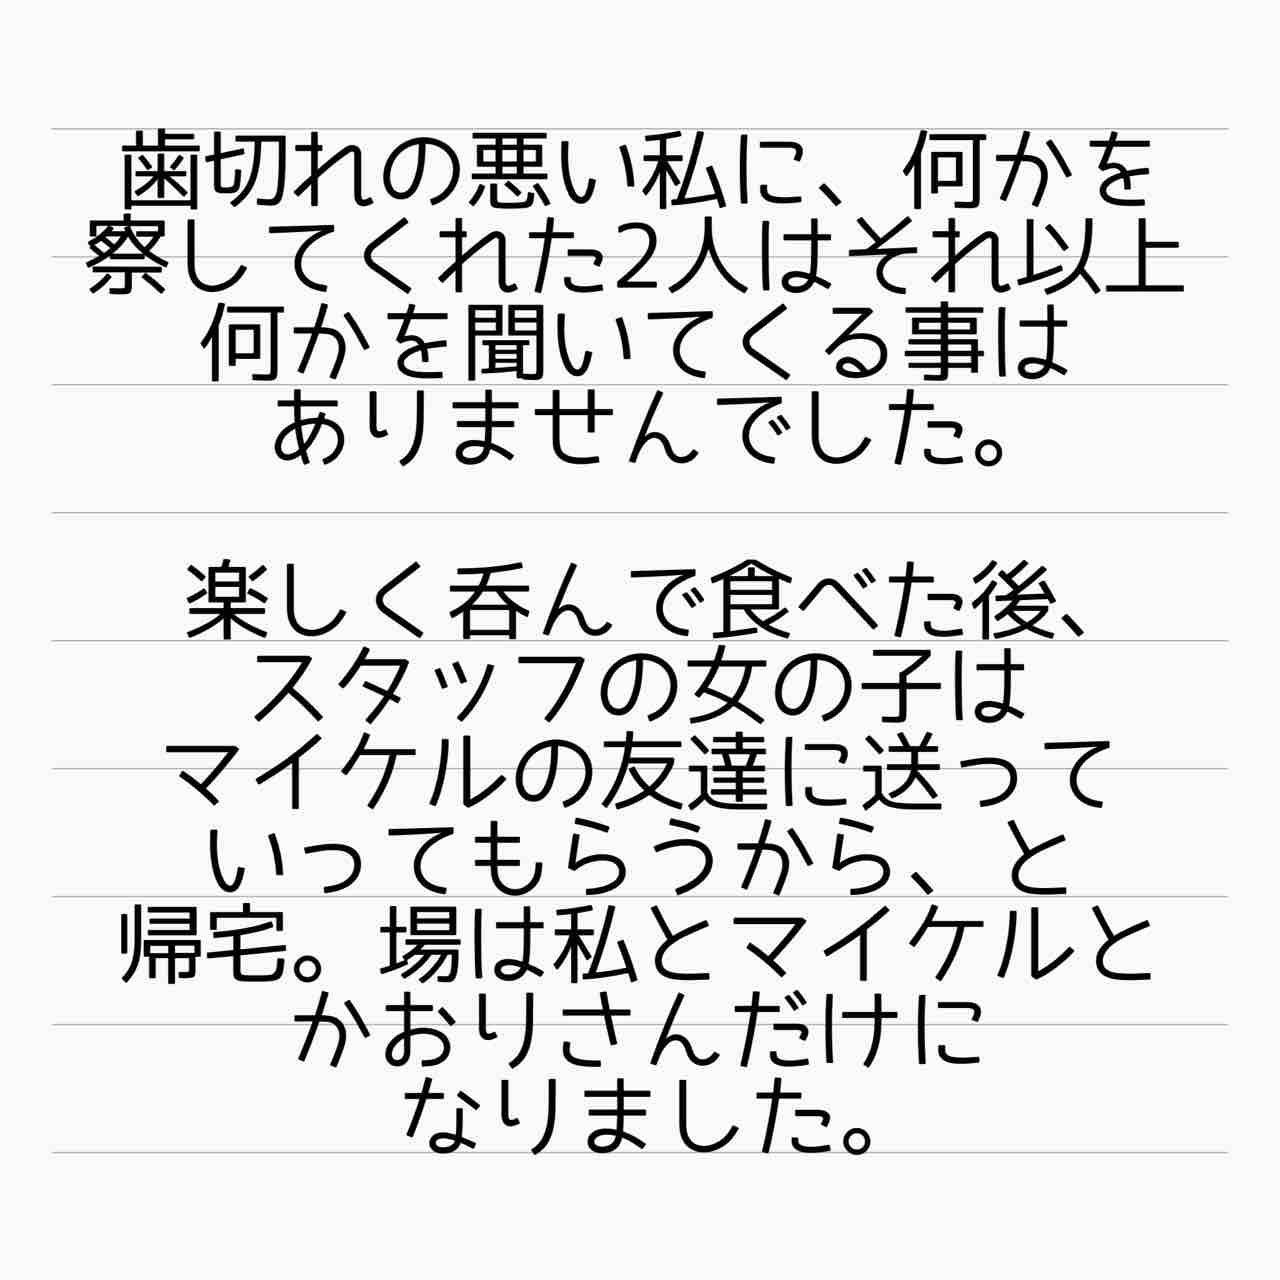 歯切れの悪い私に、何かを
察してくれた2人はそれ以上
何かを聞いてくる事は
ありませんでした。
楽しく呑んで食べた後、
スタッフの女の子は
マイケルの友達に送って
いってもらうから、と
帰宅。場は私とマイケルと
かおりさんだけに
なりました。